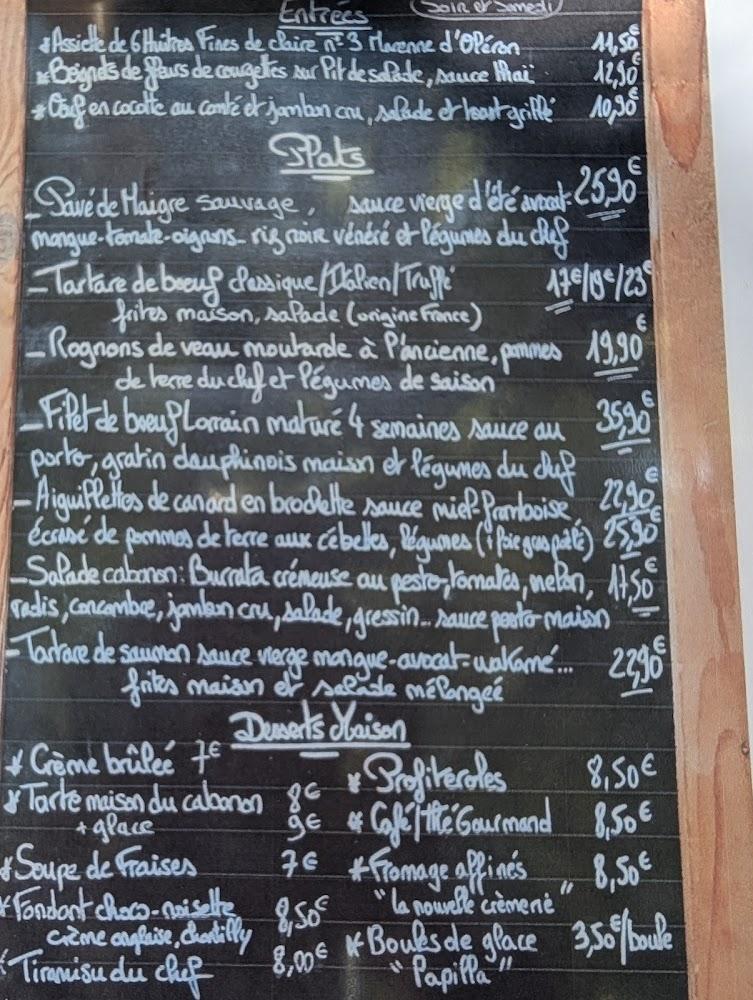 Entrées
(Soir et Samedi)
* Assiette de 6 Huîtres Fines de claire n°3 Marenne d'Oléron 11,50€
* Beignets de fleurs de courgettes sur Pit de salade, sauce thaï 12,90€
* Oeuf en cocotte au comté et jambon cru, salade et toast grillé 10,90€
Plats
- Pavé de Maigre sauvage, sauce vierge d'été avocat- 25,90€
mangue-tomate-oignons- riz noir vénéré et légumes du chef
- Tartare de boeuf classique/Italien/Truffé 17€/19€/23€
frites maison, salade (origine France)
- Rognons de veau moutarde à l'ancienne, pommes 19,90€
de terre du chef et légumes de saison
- Filet de boeuf Lorrain maturé 4 semaines sauce au 35,90€
porto, gratin dauphinois maison et légumes du chef
- Aiguillettes de canard en brochette sauce miel-framboise, 22,90€
écrasé de pommes de terre aux cébettes, légumes (+ foie gras poêlé) 25,90€
- Salade cabanon: Burrata crémeuse au pesto, tomates, melon, 17,50€
radis, concombre, jambon cru, salade, gressin... sauce pesto maison
- Tartare de saumon sauce vierge mangue-avocat-wakamé... 22,90€
frites maison et salade mélangée
Desserts Maison
* Crème brûlée 7€
* Tarte maison du cabanon 8€
+ glace 9€
* Soupe de Fraises 7€
* Fondant choco-noisette 8,50€
crème anglaise, chantilly
* Tiramisu du chef 8,00€
* Profiteroles 8,50€
* Café/thé Gourmand 8,50€
* Fromage affinés 8,50€
"la nouvelle crèmerie"
* Boules de glace 3,50€/boule
"Papilla"